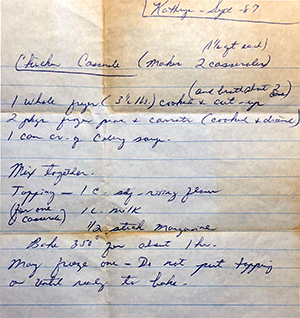 Kathryn - Sept 87
(1 1/2 qt each)
Chicken Casserole (makes 2 casseroles)
(and broth about 2 cups)
1 whole fryer (3 1/2 lbs.) cooked & cut-up
2 pkgs frozen peas & carrots (cooked & drained)
1 can cr. of Celery soup.
Mix together.
Topping - 1 C. self-rising flour
(for one casserole) 1 C. milk
1/2 stick margarine
Bake 350° for about 1 hr.
May freeze one - Do not put topping
on until ready to bake.